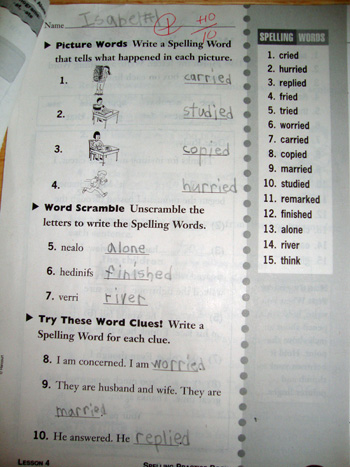 Name Isabella
+10
10
▶ Picture Words Write a Spelling Word
that tells what happened in each picture.
1. carried
2. studied
3. copied
4. hurried
▶ Word Scramble Unscramble the
letters to write the Spelling Words.
5. nealo alone
6. hedinifs finished
7. verri river
▶ Try These Word Clues! Write a
Spelling Word for each clue.
8. I am concerned. I am worried
9. They are husband and wife. They are
married
10. He answered. He replied
LESSON 4
SPELLING PRACTICE BOOK
SPELLING WORDS
1. cried
2. hurried
3. replied
4. fried
5. tried
6. worried
7. carried
8. copied
9. married
10. studied
11. remarked
12. finished
13. alone
14. river
15. think